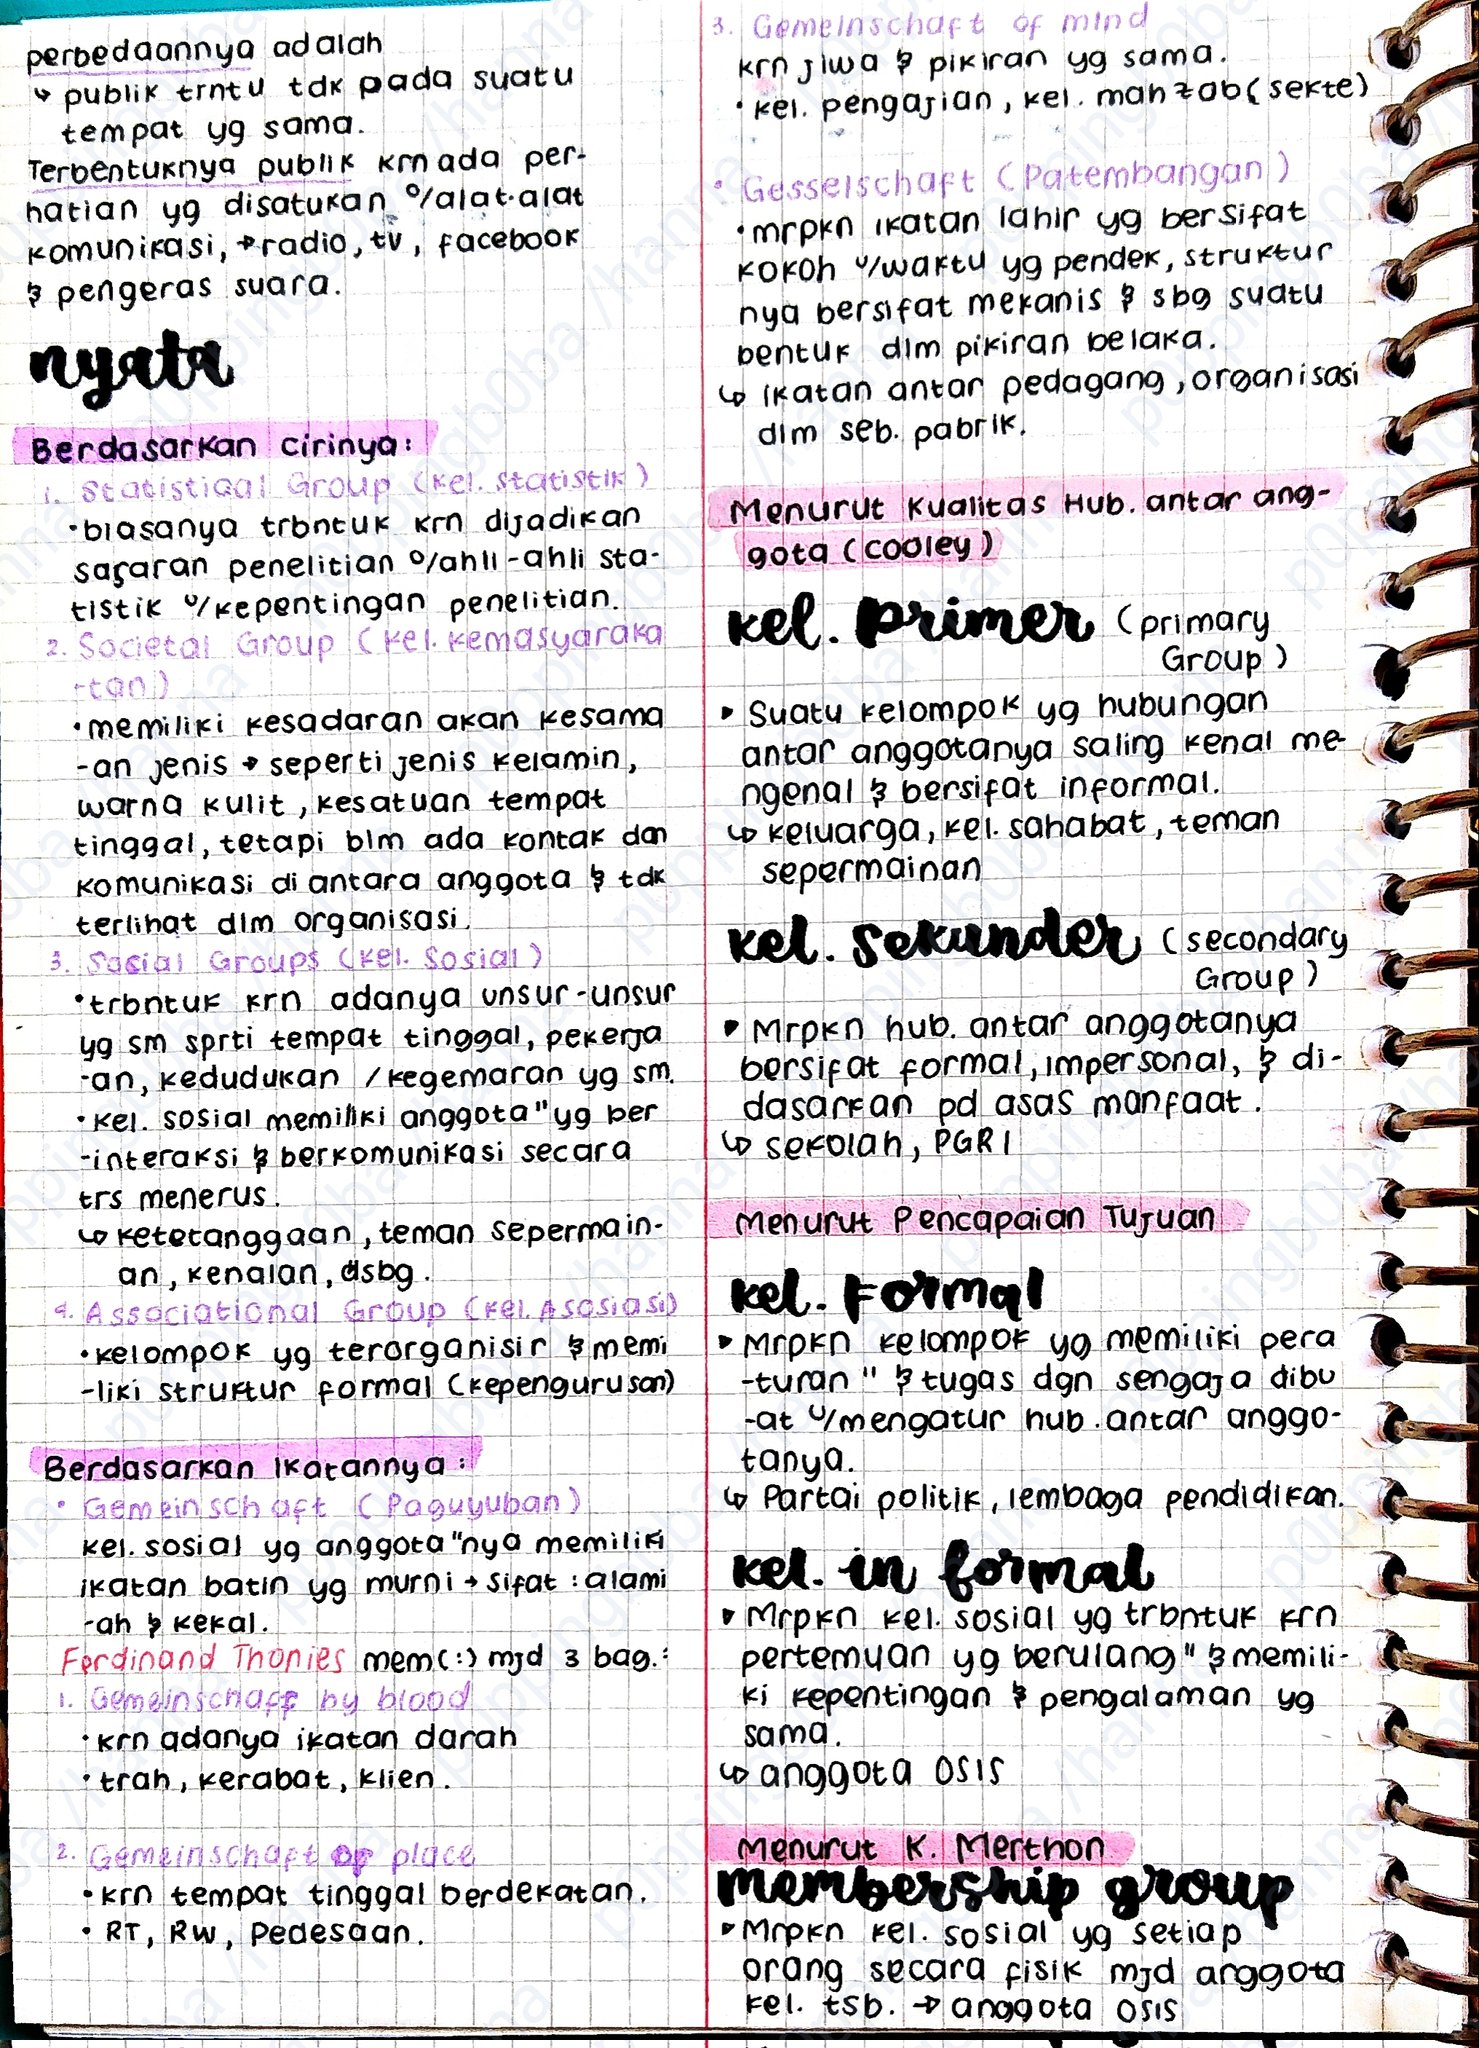 perbedaannya adalah
↳ publik trntu tdk pada suatu
tempat yg sama.
Terbentuknya publik krn ada per-
hatian yg disatukan o/alat-alat
komunikasi, → radio, tv, facebook
& pengeras suara.
nyata
Berdasarkan cirinya:
1. Statistical Group (kel. statistik)
• biasanya trbntuk krn dijadikan
sasaran penelitian o/ahli-ahli sta-
tistik u/kepentingan penelitian.
2. Societal Group (kel. kemasyaraka
-tan)
• memiliki kesadaran akan kesama
-an jenis → seperti jenis kelamin,
warna kulit, kesatuan tempat
tinggal, tetapi blm ada kontak dan
komunikasi di antara anggota & tdk
terlihat dlm organisasi.
3. Social Groups (kel. Sosial)
• trbntuk krn adanya unsur-unsur
yg sm sprti tempat tinggal, pekerja
-an, kedudukan / kegemaran yg sm.
• kel. sosial memiliki anggota" yg ber
-interaksi & berkomunikasi secara
trs menerus.
↳ ketetanggaan, teman sepermain-
an, kenalan, dsbg.
4. Associational Group (kel. Asosiasi)
• kelompok yg terorganisir & memi
-liki struktur formal (kepengurusan)
Berdasarkan Ikatannya:
• Gemeinschaft (Paguyuban)
kel. sosial yg anggota"nya memiliki
ikatan batin yg murni → sifat : alami
-ah & kekal.
Ferdinand Thonies mem(:) mjd 3 bag.:
1. Gemeinschaff by blood
• krn adanya ikatan darah
• trah, kerabat, klien.
2. Gemeinschaft of place
• krn tempat tinggal berdekatan.
• RT, RW, Pedesaan.
3. Gemeinschaft of mind
krn jiwa & pikiran yg sama.
• kel. pengajian, kel. mahzab (sekte)
• Gesselschaft (Patembangan)
• mrpkn ikatan lahir yg bersifat
kokoh u/waktu yg pendek, struktur
nya bersifat mekanis & sbg suatu
bentuk dlm pikiran belaka.
↳ Ikatan antar pedagang, organisasi
dlm seb. pabrik.
Menurut Kualitas Hub. antar ang-
gota (cooley)
kel. Primer (primary
Group)
▸ Suatu kelompok yg hubungan
antar anggotanya saling kenal me-
ngenal & bersifat informal.
↳ keluarga, kel. sahabat, teman
sepermainan
kel. Sekunder (secondary
Group)
▸ Mrpkn hub. antar anggotanya
bersifat formal, impersonal, & di-
dasarkan pd asas manfaat.
↳ sekolah, PGRI
Menurut Pencapaian Tujuan
kel. Formal
▸ Mrpkn kelompok yg memiliki pera
-turan" & tugas dgn sengaja dibu
-at u/mengatur hub. antar anggo-
tanya.
↳ Partai politik, lembaga pendidikan.
kel. in formal
▸ Mrpkn kel. sosial yg trbntuk krn
pertemuan yg berulang" & memili-
ki kepentingan & pengalaman yg
sama.
↳ anggota OSIS
Menurut K. Merthon
membership group
▸ Mrpkn kel. sosial yg setiap
orang secara fisik mjd anggota
kel. tsb. → anggota OSIS